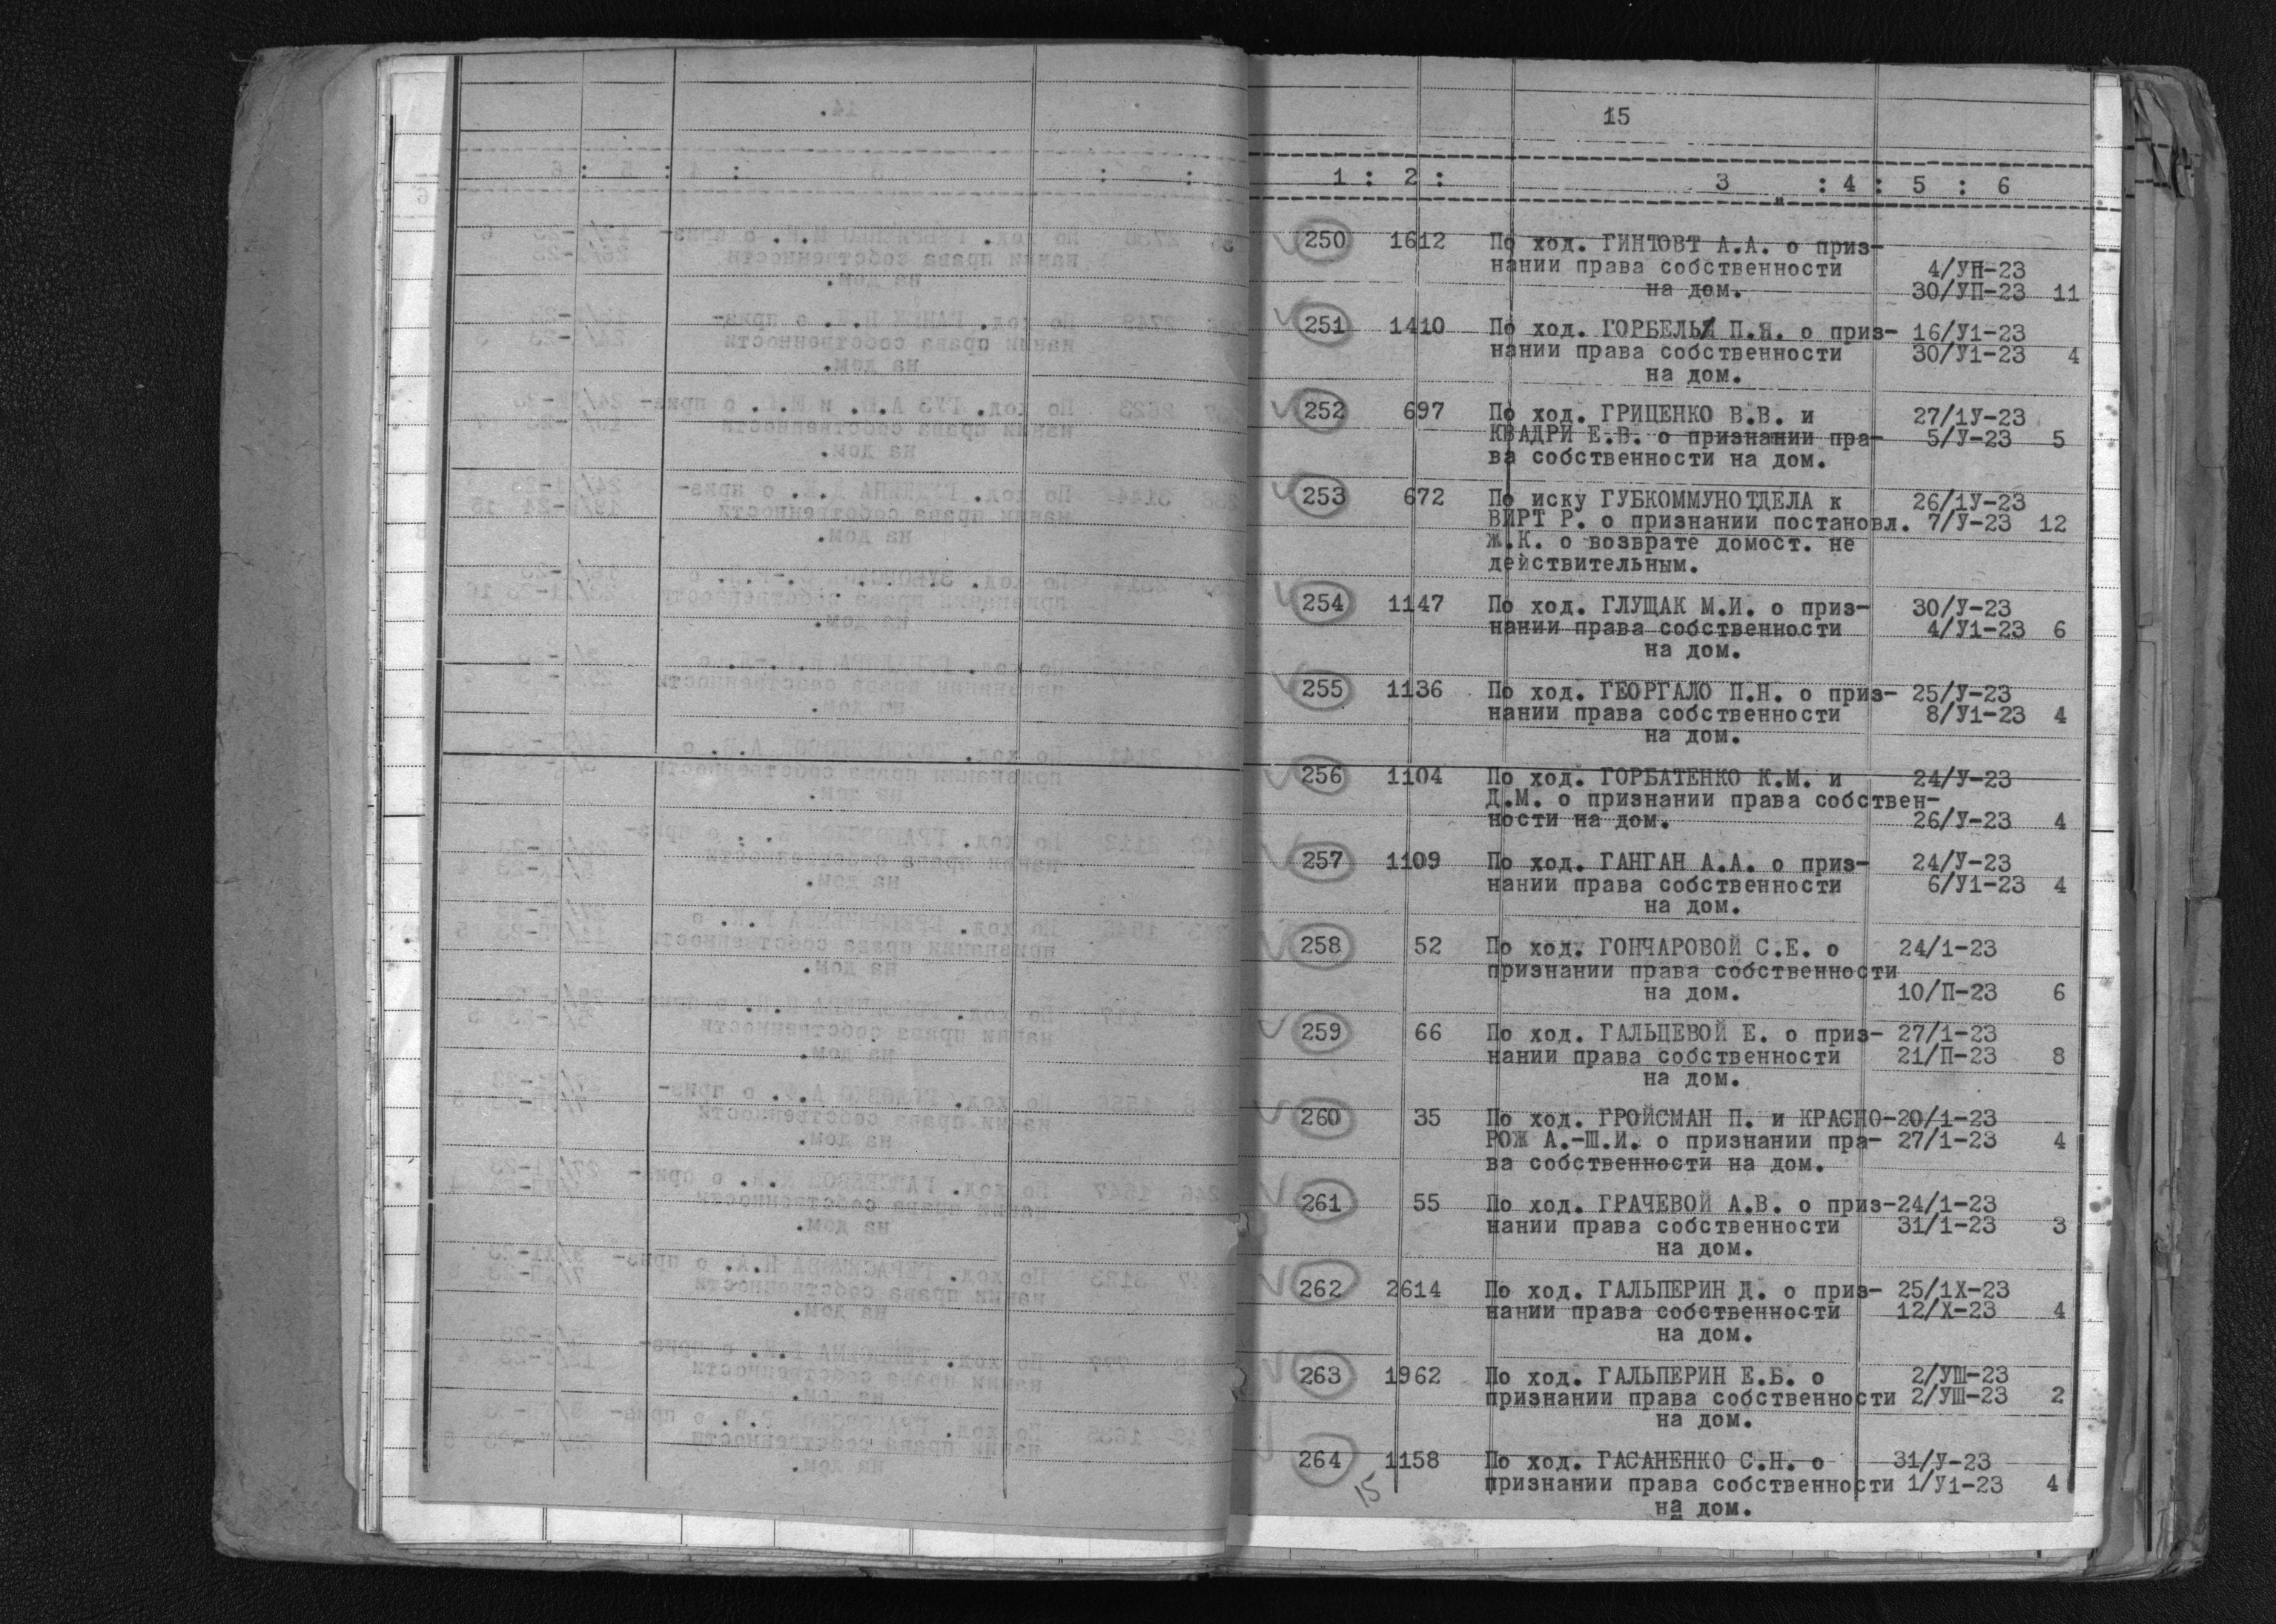 15
1 : 2 : 3 : 4 : 5 : 6
250 1612 По ход. ГИНТОВТ А.А. о приз-
нании права собственности 4/УП-23
на дом. 30/УП-23 11
251 1410 По ход. ГОРБЕЛЬ П.Я. о приз- 16/У1-23
нании права собственности 30/У1-23 4
на дом.
252 697 По ход. ГРИЦЕНКО В.В. и 27/1У-23
КВАДРИ Е.В. о признании пра- 5/У-23 5
ва собственности на дом.
253 672 По иску ГУБКОММУНОТДЕЛА к 26/1У-23
ВИРТ Р. о признании постановл. 7/У-23 12
Ж.К. о возврате домост. не
действительным.
254 1147 По ход. ГЛУЩАК М.И. о приз- 30/У-23
нании права собственности 4/У1-23 6
на дом.
255 1136 По ход. ГЕОРГАЛО П.Н. о приз- 25/У-23
нании права собственности 8/У1-23 4
на дом.
256 1104 По ход. ГОРБАТЕНКО К.М. и 24/У-23
Д.М. о признании права собствен-
ности на дом. 26/У-23 4
257 1109 По ход. ГАНГАН А.А. о приз- 24/У-23
нании права собственности 6/У1-23 4
на дом.
258 52 По ход. ГОНЧАРОВОЙ С.Е. о 24/1-23
признании права собственности
на дом. 10/П-23 6
259 66 По ход. ГАЛЬЦЕВОЙ Е. о приз- 27/1-23
нании права собственности 21/П-23 8
на дом.
260 35 По ход. ГРОЙСМАН П. и КРАСНО-20/1-23
РОЖ А.-Ш.И. о признании пра- 27/1-23 4
ва собственности на дом.
261 55 По ход. ГРАЧЕВОЙ А.В. о приз-24/1-23
нании права собственности 31/1-23 3
на дом.
262 2614 По ход. ГАЛЬПЕРИН Д. о приз- 25/1Х-23
нании права собственности 12/Х-23 4
на дом.
263 1962 По ход. ГАЛЬПЕРИН Е.Б. о 2/УШ-23
признании права собственности 2/УШ-23 2
на дом.
264 1158 По ход. ГАСАНЕНКО С.Н. о 31/У-23
признании права собственности 1/У1-23 4
на дом.
15